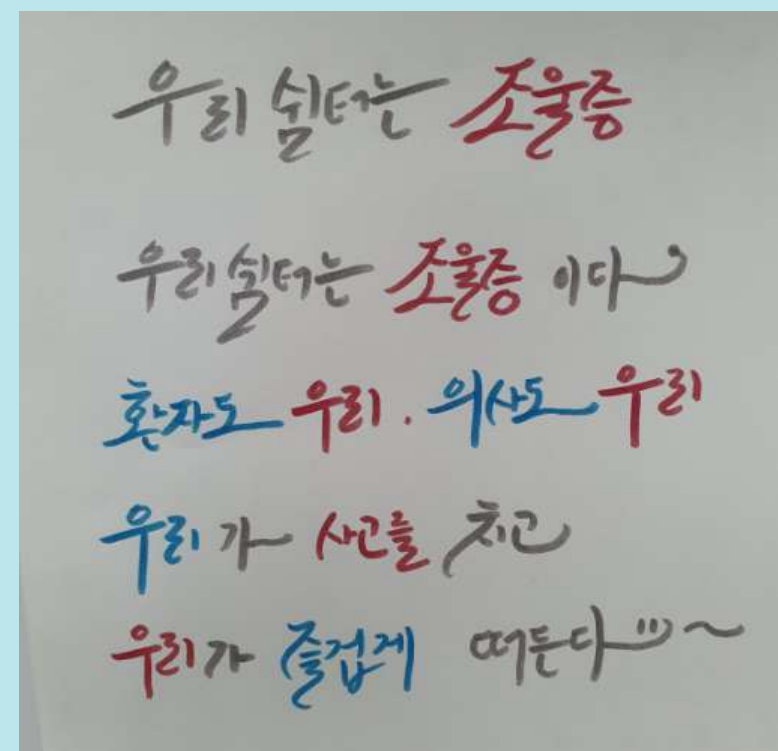 우리 쉼터는 조울증
우리쉼터는 조울증 이다
환자도 우리. 의사도 우리
우리가 사고를 치고
우리가 즐겁게 떠든다~